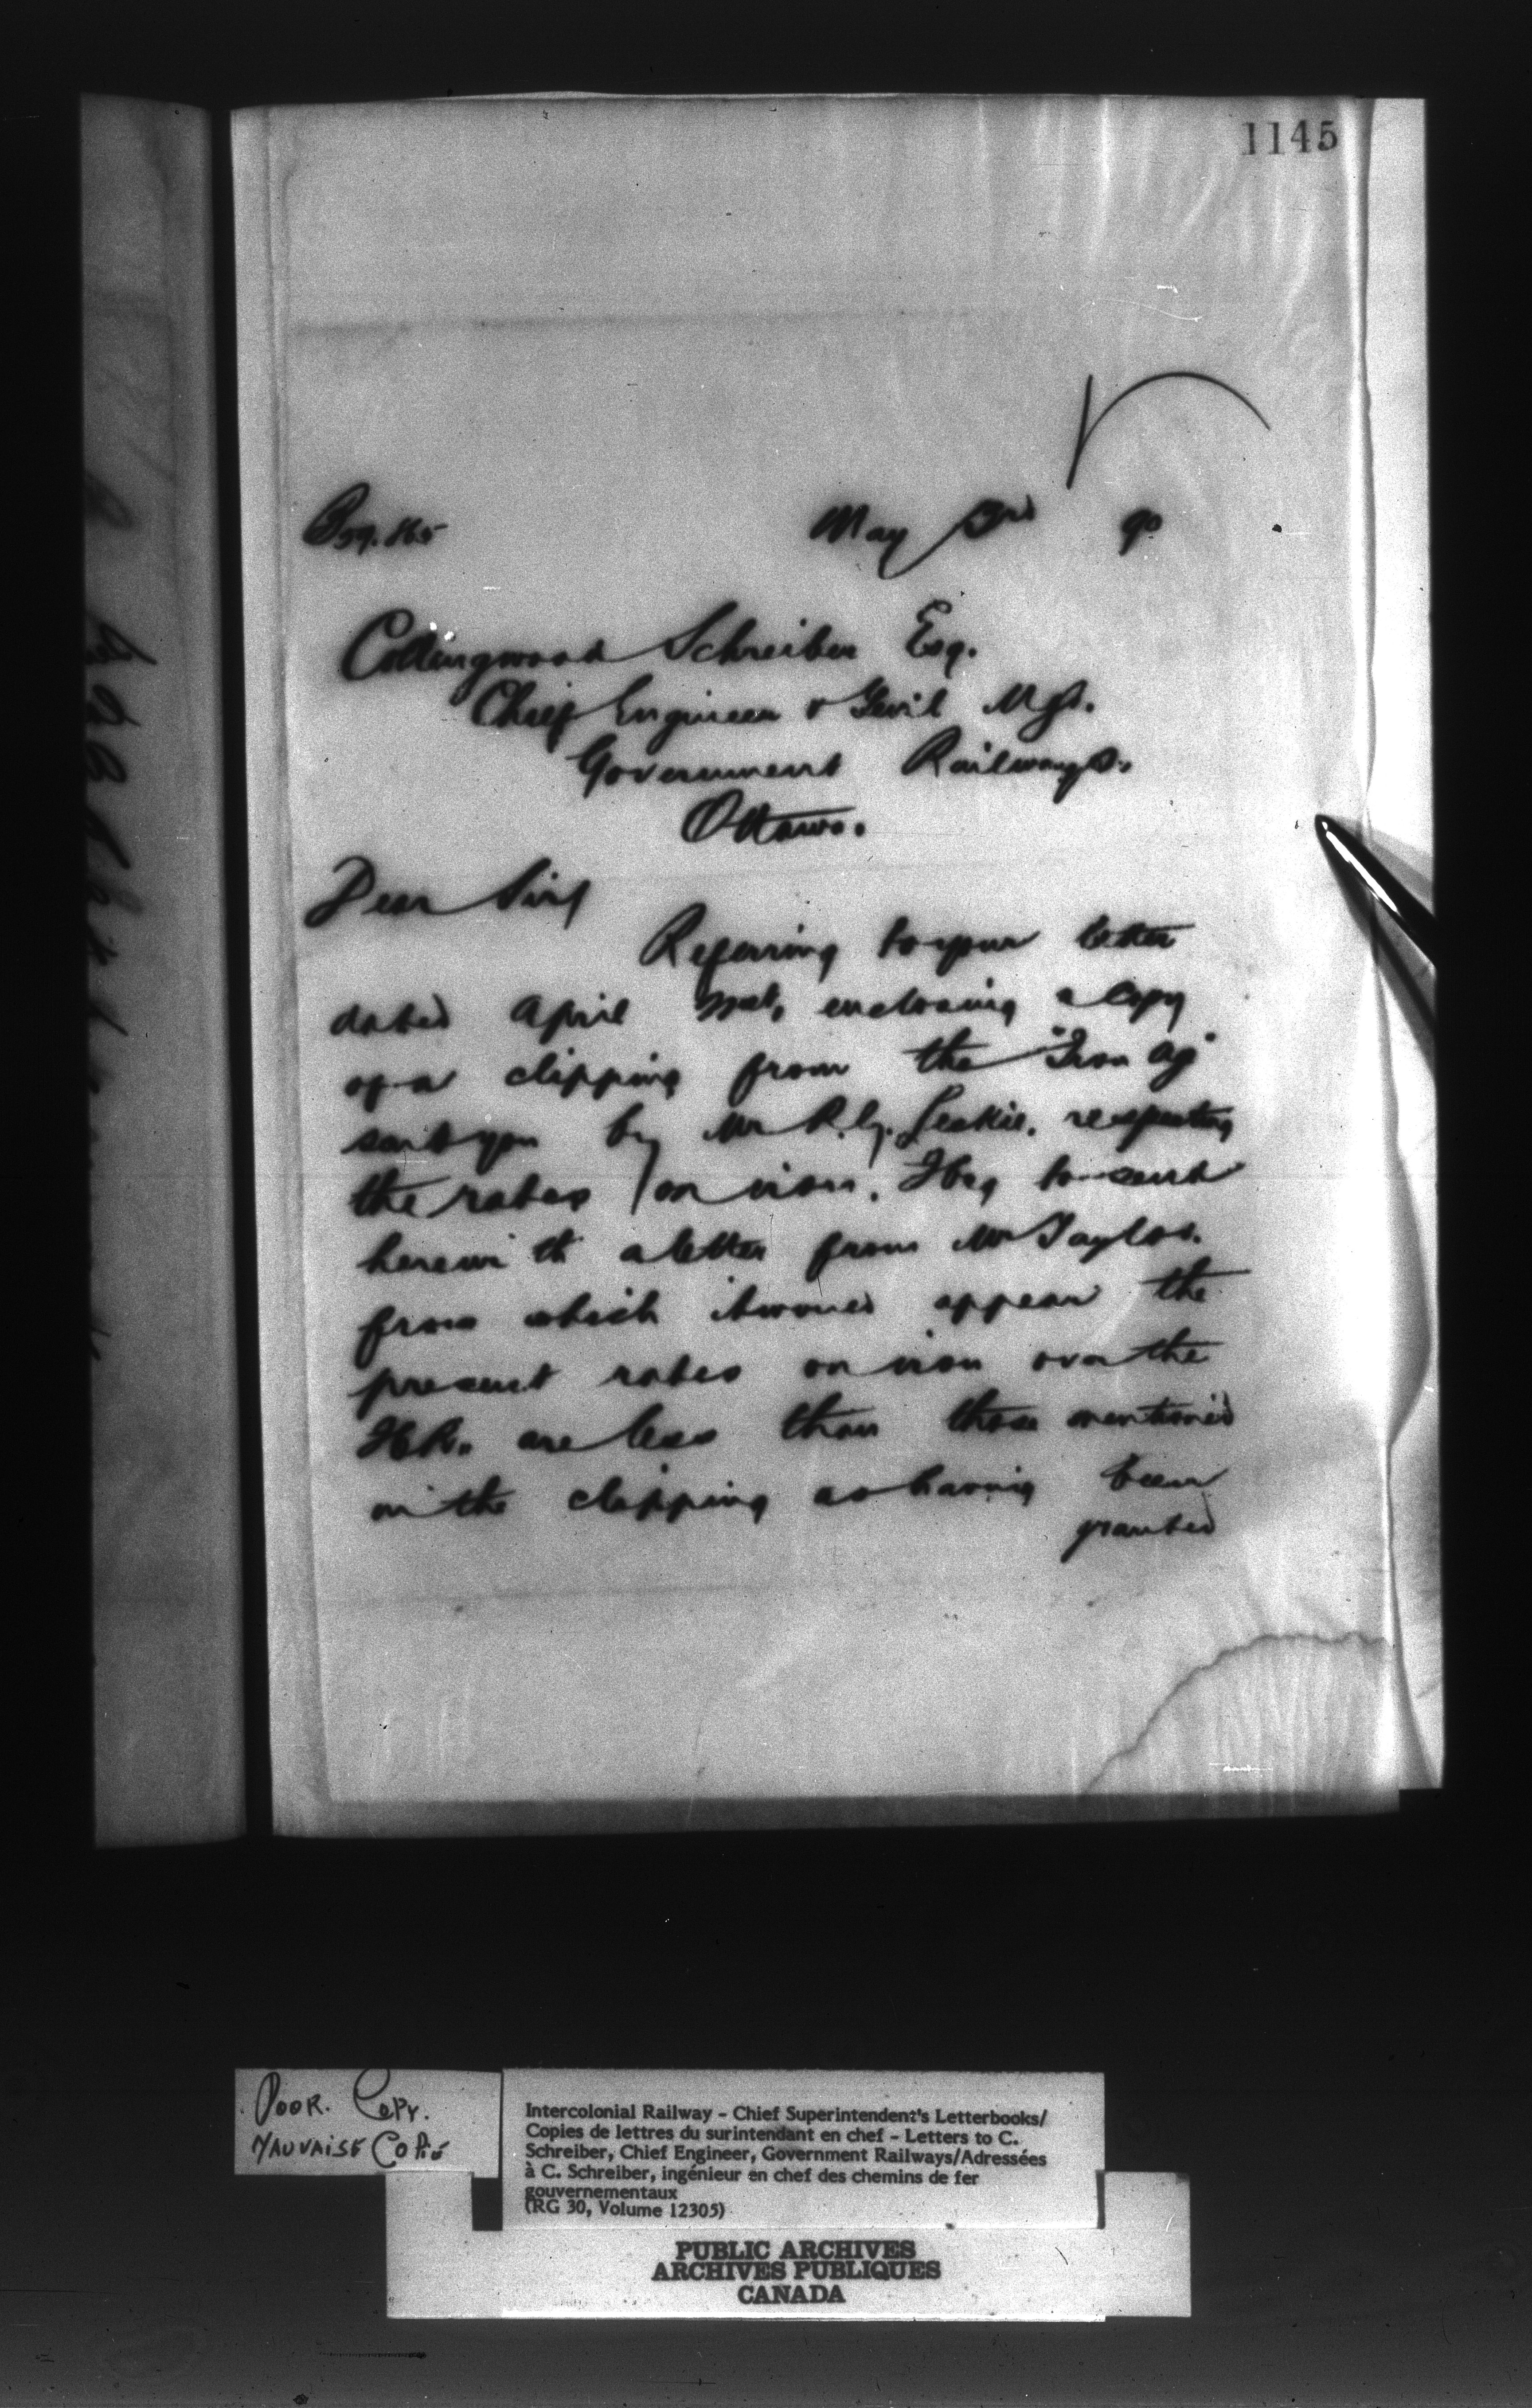 1145
May 3rd 90
Collingwood Schreiber Esq.
Chief Engineer & Genl Mgr.
Government Railways.
Ottawa.
Dear Sir,
Referring to your letter
dated April enclosing a copy
of a clipping from the "Iron Age"
sent you by Mr R.G. Leckie. respecting
the rates on iron. I beg to send
herewith a letter from Mr Taylor.
from which it would appear the
present rates on iron over the
ICR. are less than those mentioned
in the clipping as having been
granted
POOR. COPY.
MAUVAISE COPIE
Intercolonial Railway - Chief Superintendent's Letterbooks/
Copies de lettres du surintendant en chef - Letters to C.
Schreiber, Chief Engineer, Government Railways/Adressées
à C. Schreiber, ingénieur en chef des chemins de fer
gouvernementaux
(RG 30, Volume 12305)
PUBLIC ARCHIVES
ARCHIVES PUBLIQUES
CANADA